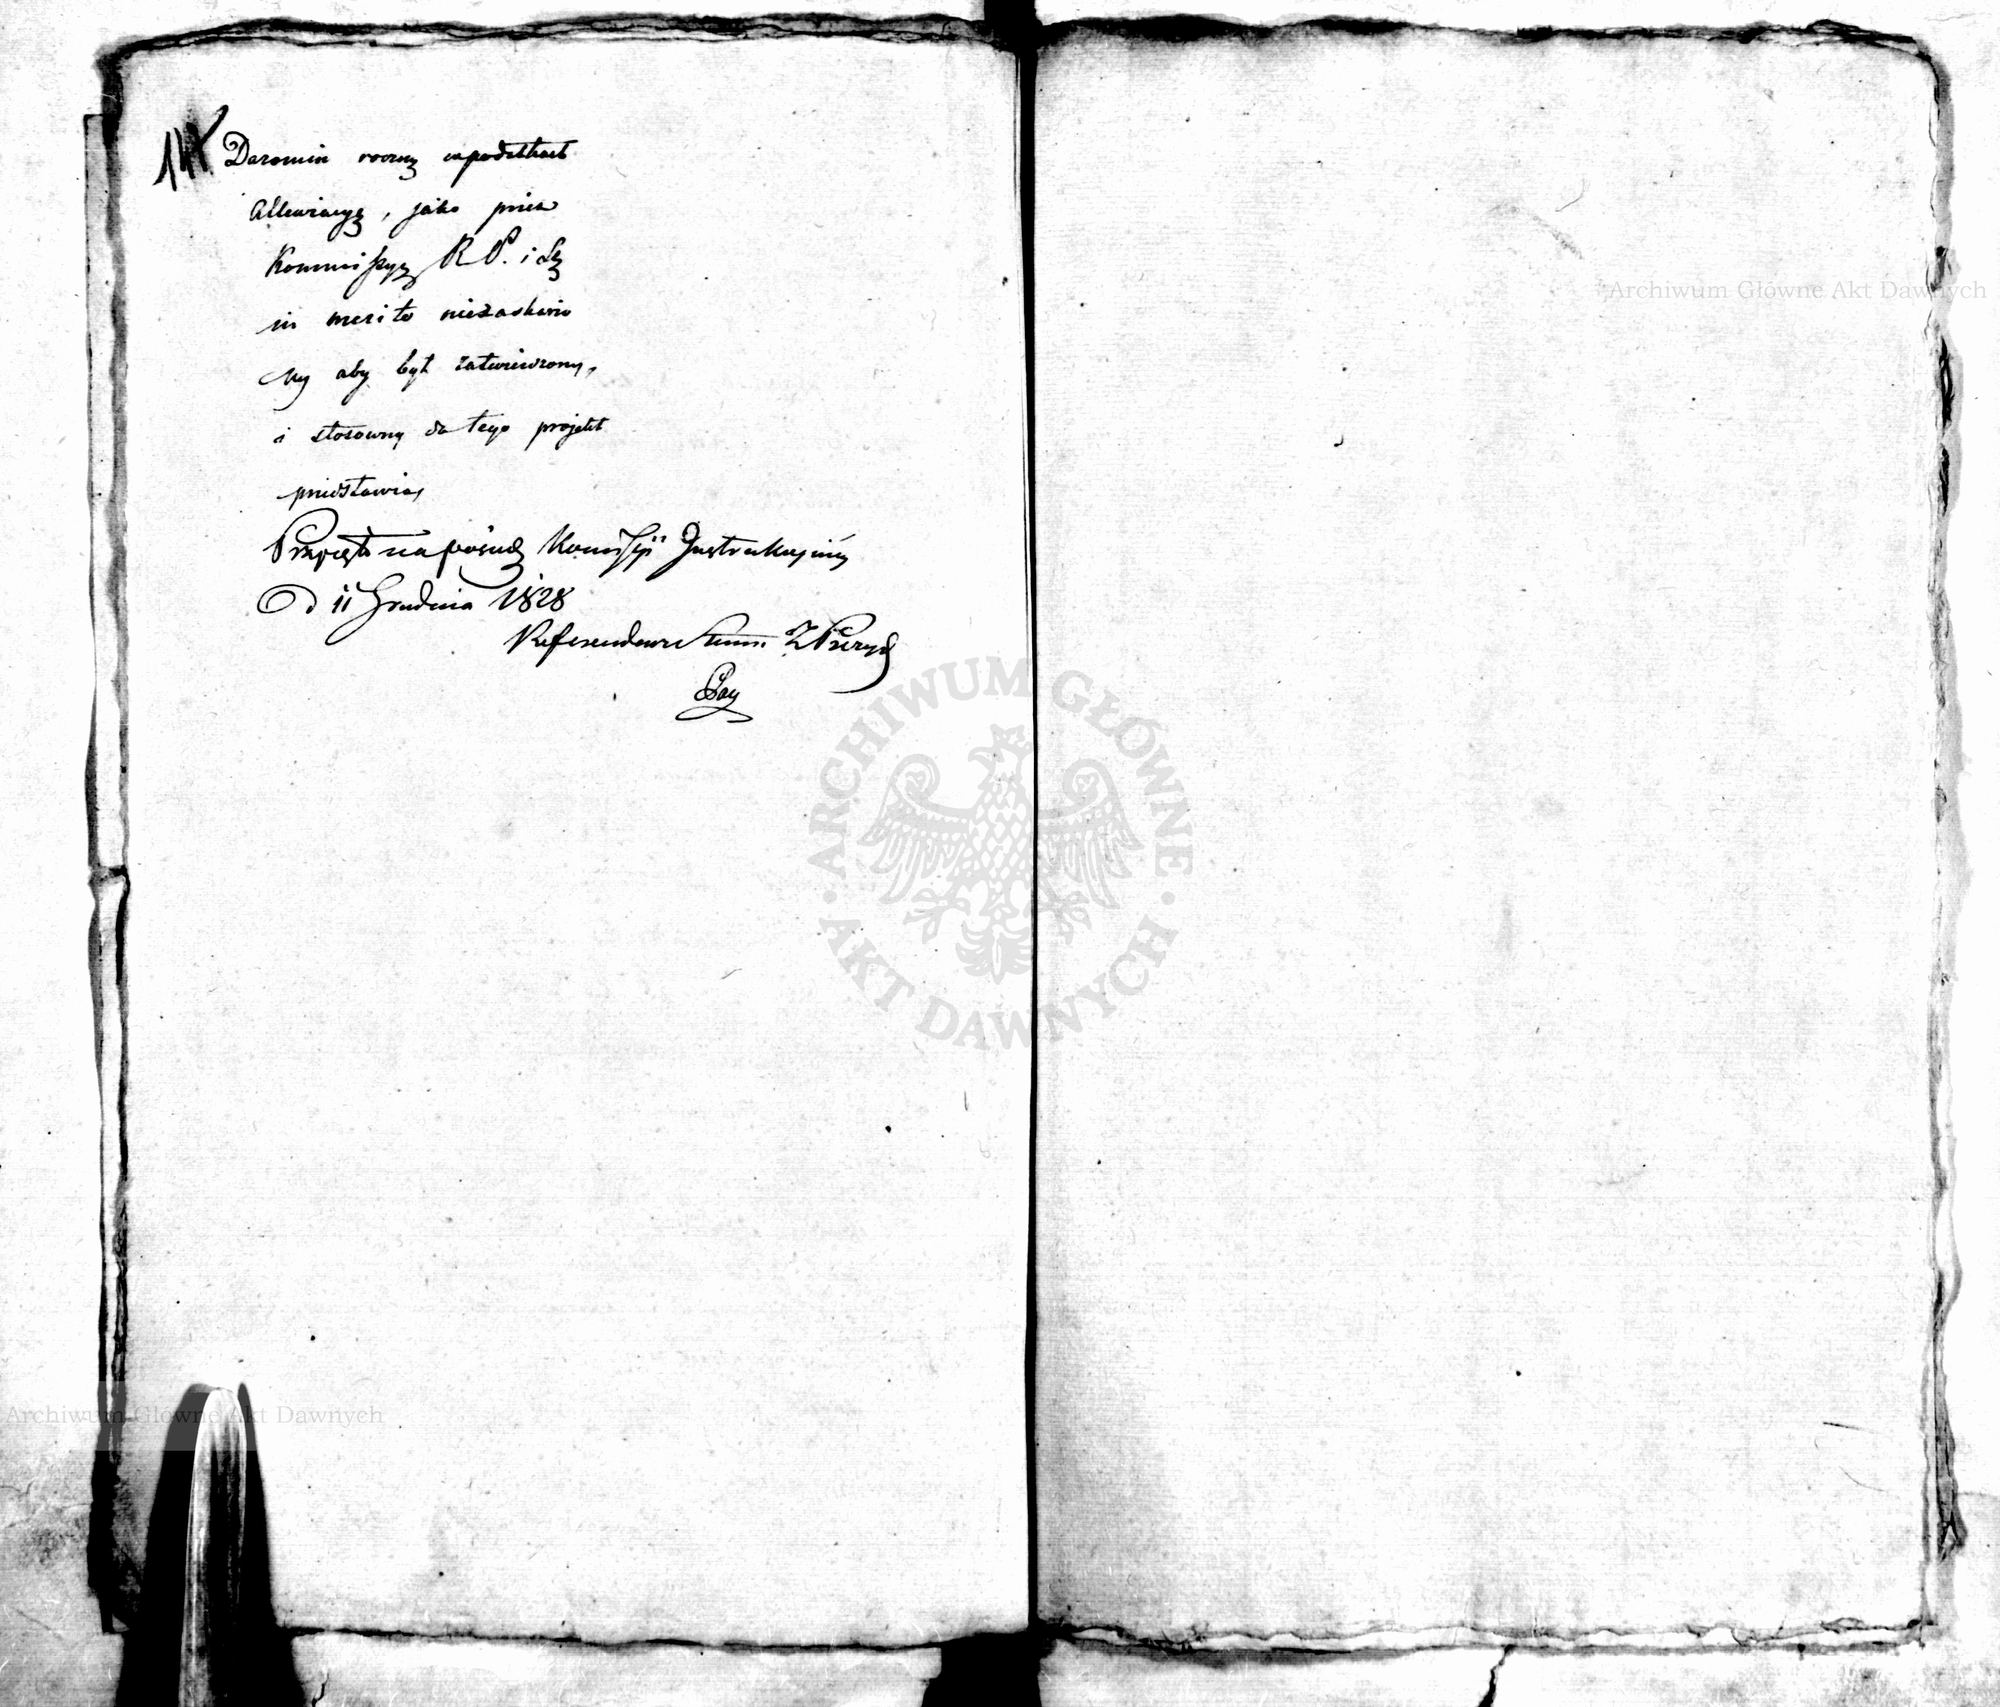 Daromin roczny w podatkach
Allewiacyę, jako przez
Kommissyę R. P. i S.
in merito niezaskarżo
ny aby był zatwierdzony,
i stosowny do tego projekt
przedstawia,
Przyięto na posiedz Komissyi Instrukcyjney
D 11 Grudnia 1828
Referendarz Stanu
Archiwum Główne Akt Dawnych
Archiwum Główne Akt Dawnych
ARCHIWUM GŁÓWNE AKT DAWNYCH